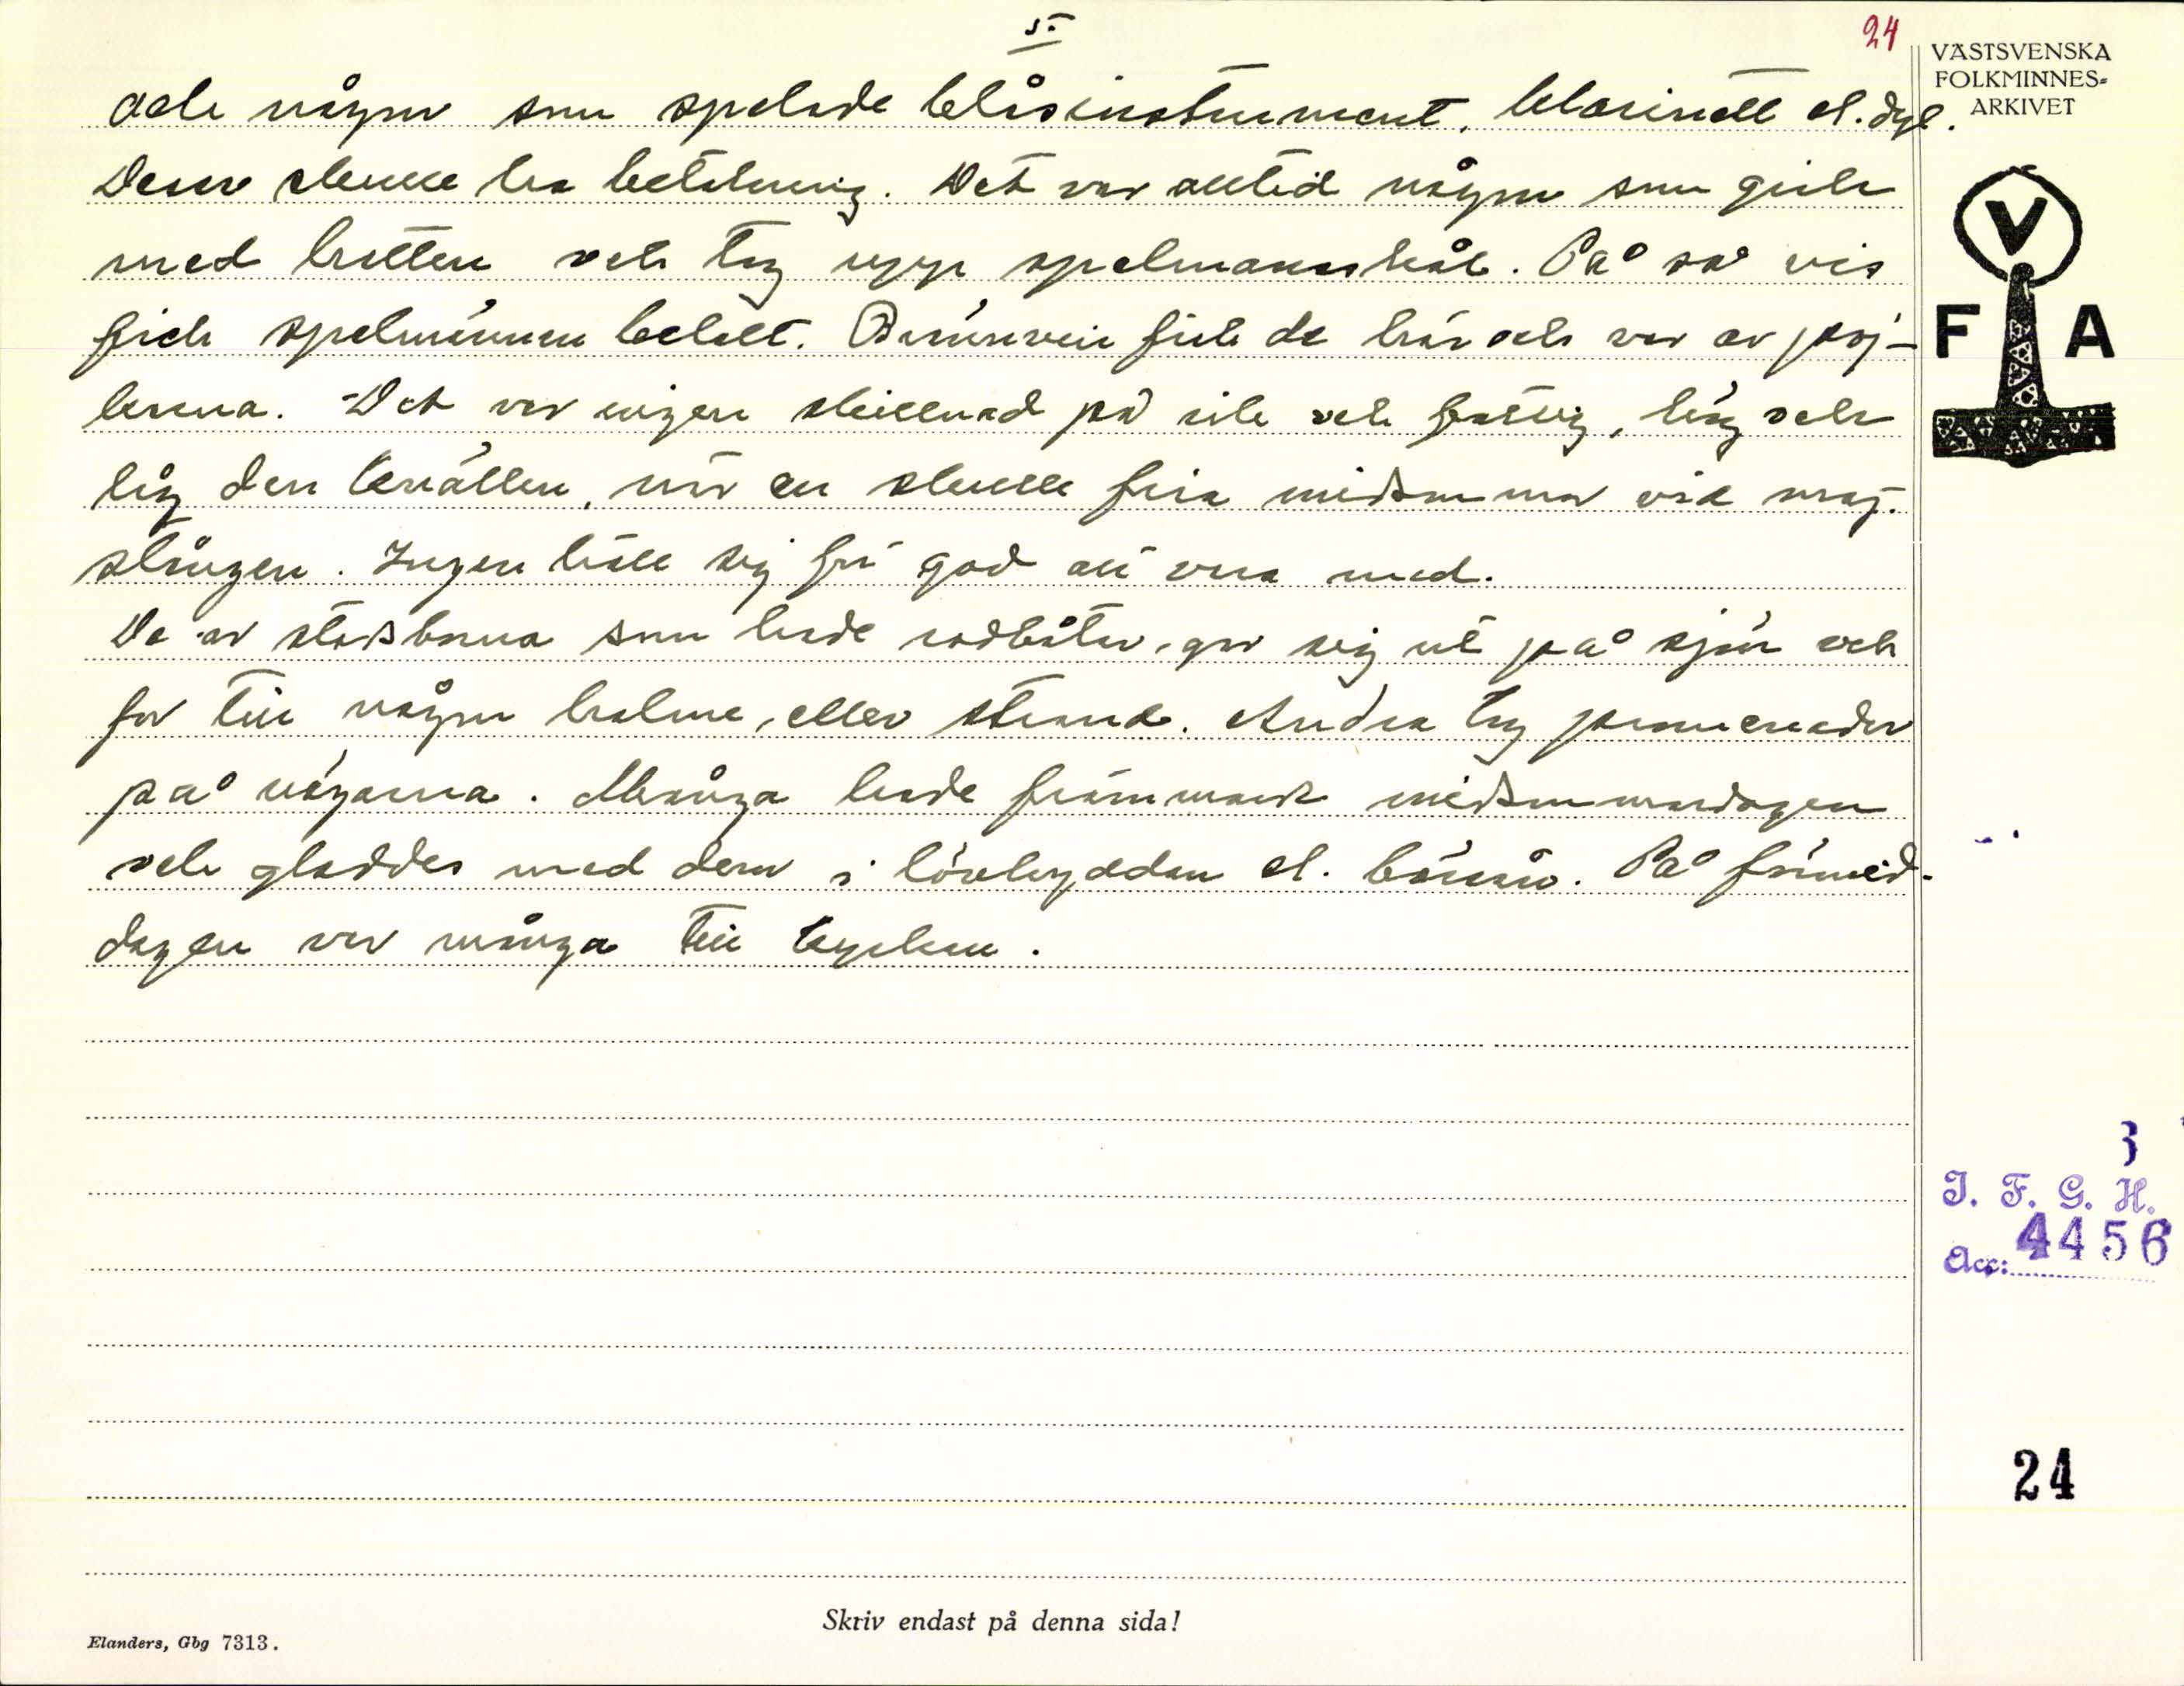 5.
24
VÄSTSVENSKA
FOLKMINNES-
ARKIVET
och någon som spelade blåsinstrument, klarinett el. dyl.
Dessa skulle ha betalning. Det var alltid någon som gick
med hatten och tog upp spelmansskål. På så vis
fick spelmännen betalt. Brännvin fick de här och var av poj-
karna. Det var ingen skillnad på rik och fattig, hög och
låg den kvällen, när en skulle fira midsommar vid maj-
stången. Ingen höll sig för god att vara med.
De av stadsborna som hade roddbåtar, gav sig ut på sjön och
for till någon holme, eller strand. Andra tog promenader
på vägarna. Många hade främmande midsommardagen
och gladdes med dem i lövhyddan el. bersån. På förmid-
dagen var många till kyrkan.
V
F A
3
I. F. G. H.
Acc: 4456
24
Skriv endast på denna sida!
Elanders, Gbg 7313.